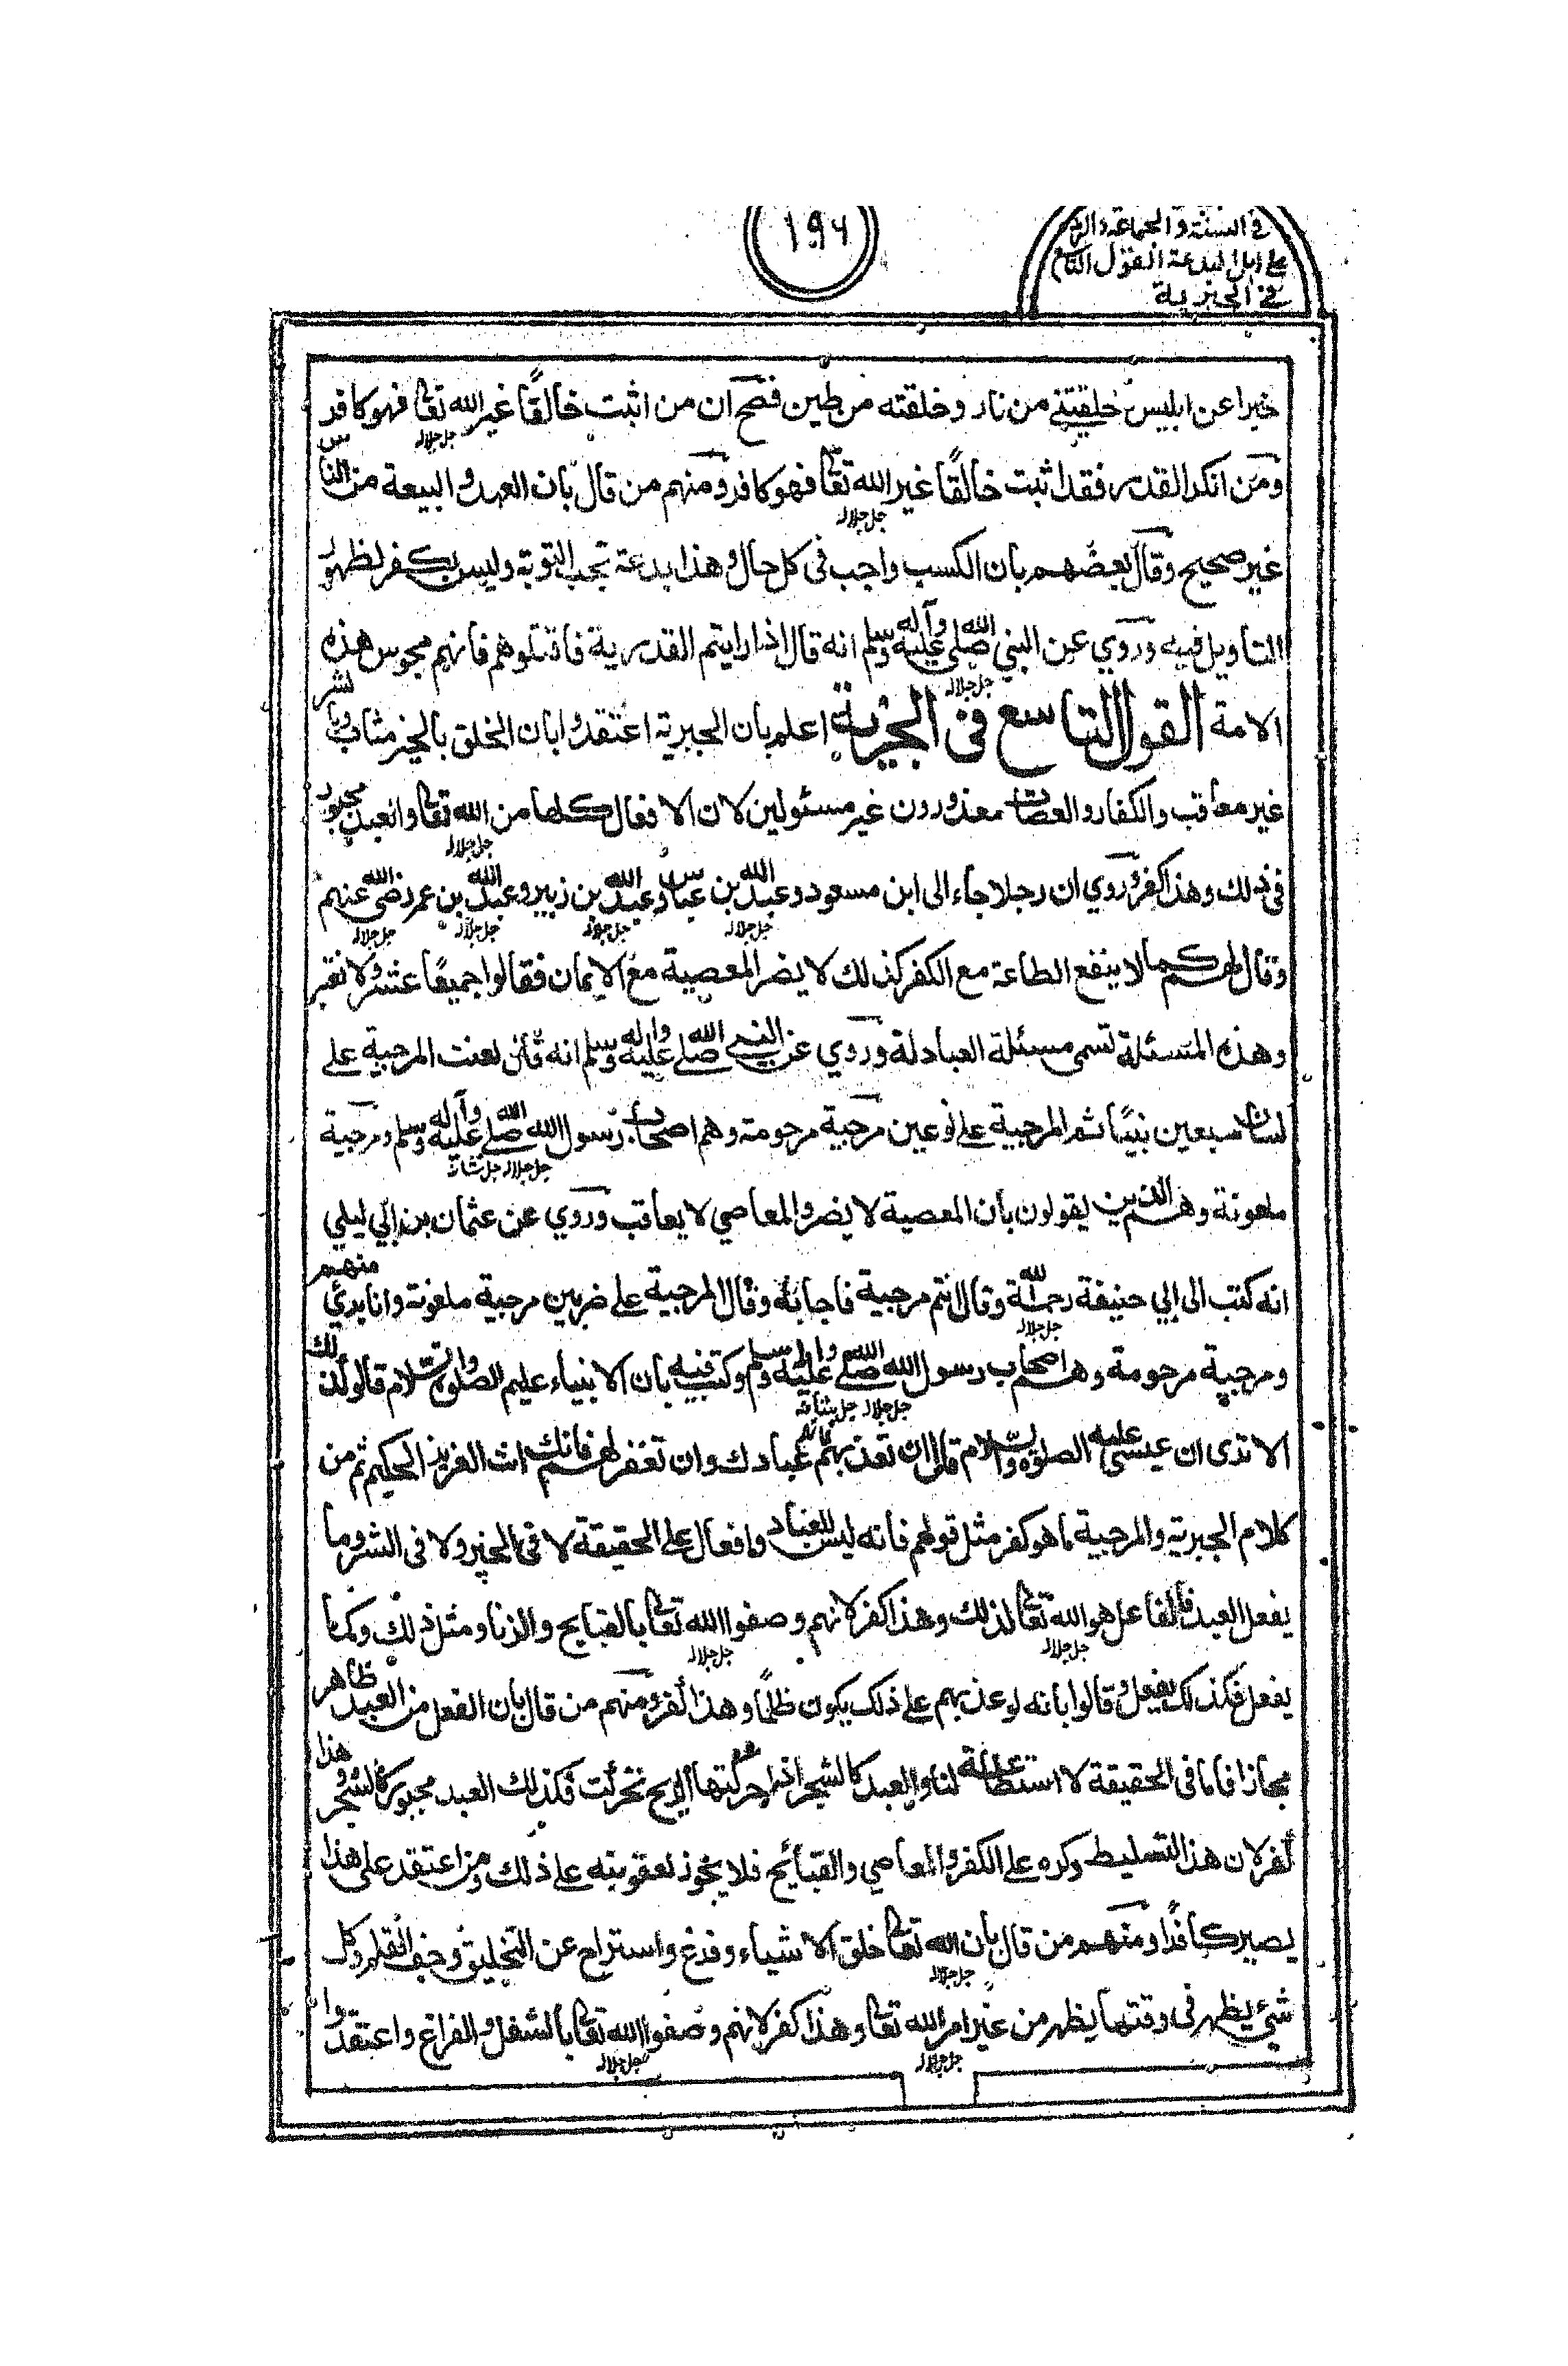 ١٩٧
في السنة والجماعة والرد
على اهل البدعة القول التاسع
في الجبرية
خبرا عن ابليس خلقتني من نار وخلقته من طين فصح ان من اثبت خالقًا غير الله تعالى فهو كافر
جل جلاله
ومن انكر القدر فقد اثبت خالقًا غير الله تعالى فهو كافر ومنهم من قال بان العهد والبيعة من الناس
جل جلاله
غير صحيح وقال بعضهم بان الكسب واجب في كل حال وهذا بدعة تجب التوبة وليس بكفر لظهور
التاويل فيه وروي عن النبي صلى الله عليه وآله وسلم انه قال اذا رايتم القدرية فاقتلوهم فانهم مجوس هذه
جل جلاله
الامة القول التاسع في الجبرية اعلم بان الجبرية اعتقدوا بان الخلق بالخير مثاب وبالشر
غير معاقب والكفار والعصاة معذورون غير مسئولين لان الافعال كلها من الله تعالى والعبد مجبور
جل جلاله
في ذلك وهذا كفر وروي ان رجلا جاء الى ابن مسعود وعبد الله بن عباس وعبد الله بن زبير وعبد الله بن عمر رضي الله عنهم
جل جلاله جل جلاله جل جلاله جل جلاله
وقال لهم كما لا ينفع الطاعة مع الكفر كذلك لا يضر المعصية مع الايمان فقالوا جميعًا عش ولا تغتر
وهذه المسئلة تسمى مسئلة العبادلة وروي عن النبي صلى الله عليه واله وسلم انه قال لعنت المرجية على
لسان سبعين نبيًا ثم المرجية على نوعين مرجية مرحومة وهم اصحاب رسول الله صلى الله عليه وآله وسلم ومرجية
جل جلاله جل شانه
ملعونة وهم الذين يقولون بان المعصية لا يضر والمعاصي لا يعاقب وروي عن عثمان بن ابي ليلي
انه كتب الى ابي حنيفة رحمه الله وقال انتم مرجية فاجابه وقال المرجية على ضربين مرجية ملعونة وانا بريئ منهم
جل جلاله
ومرجية مرحومة وهم اصحاب رسول الله صلى الله عليه واله وسلم وكتب فيه بان الانبياء عليهم الصلوة والسلام قالوا كذلك
جل جلاله جل شانه
الا ترى ان عيسى عليه الصلوة والسلام قال ان تعذبهم فانهم عبادك وان تغفر لهم فانك انت العزيز الحكيم ثم من
كلام الجبرية والمرجية ما هو كفر مثل قولهم فانه ليس للعباد افعال على الحقيقة لا في الخير ولا في الشر وما
يفعل العبد فالفاعل هو الله تعالى لذلك وهذا كفر لانهم وصفوا الله تعالى بالقبايح والزنا ومثل ذلك وكما
جل جلاله جل جلاله
يفعل فكذلك يفعل وقالوا بانه لو عذبهم على ذلك يكون ظلمًا وهذا كفر ومنهم من قال بان الفعل من العبد ظاهر
مجازا فاما في الحقيقة لا استطاعة لنا والعبد كالشجر اذا حركتها الريح تحركت فكذلك العبد مجبور كالشجر وهذا
كفر لان هذا التسليط وكره على الكفر والمعاصي والقبائح فلا يجوز لعقوبته على ذلك ومن اعتقد على هذا
يصير كافرًا ومنهم من قال بان الله تعالى خلق الاشياء وفرغ واستراح عن التخليق وجف القلم وكل
جل جلاله
شيئ يظهر في وقتها يظهر من غير امر الله تعالى وهذا كفر لانهم وصفوا الله تعالى بالشغل والفراغ واعتقدوا
جل جلاله جل جلاله